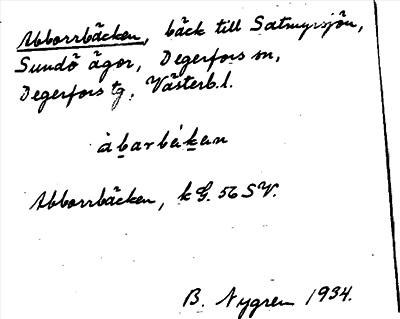 Abborrbäcken, bäck till Satmyrsjön,
Sundö ägor, Degerfors sn,
Degerfors tg, Västerb.l.
àbarbékɛn
Abborrbäcken, kG. 56 SV.
B. Nygren 1934.